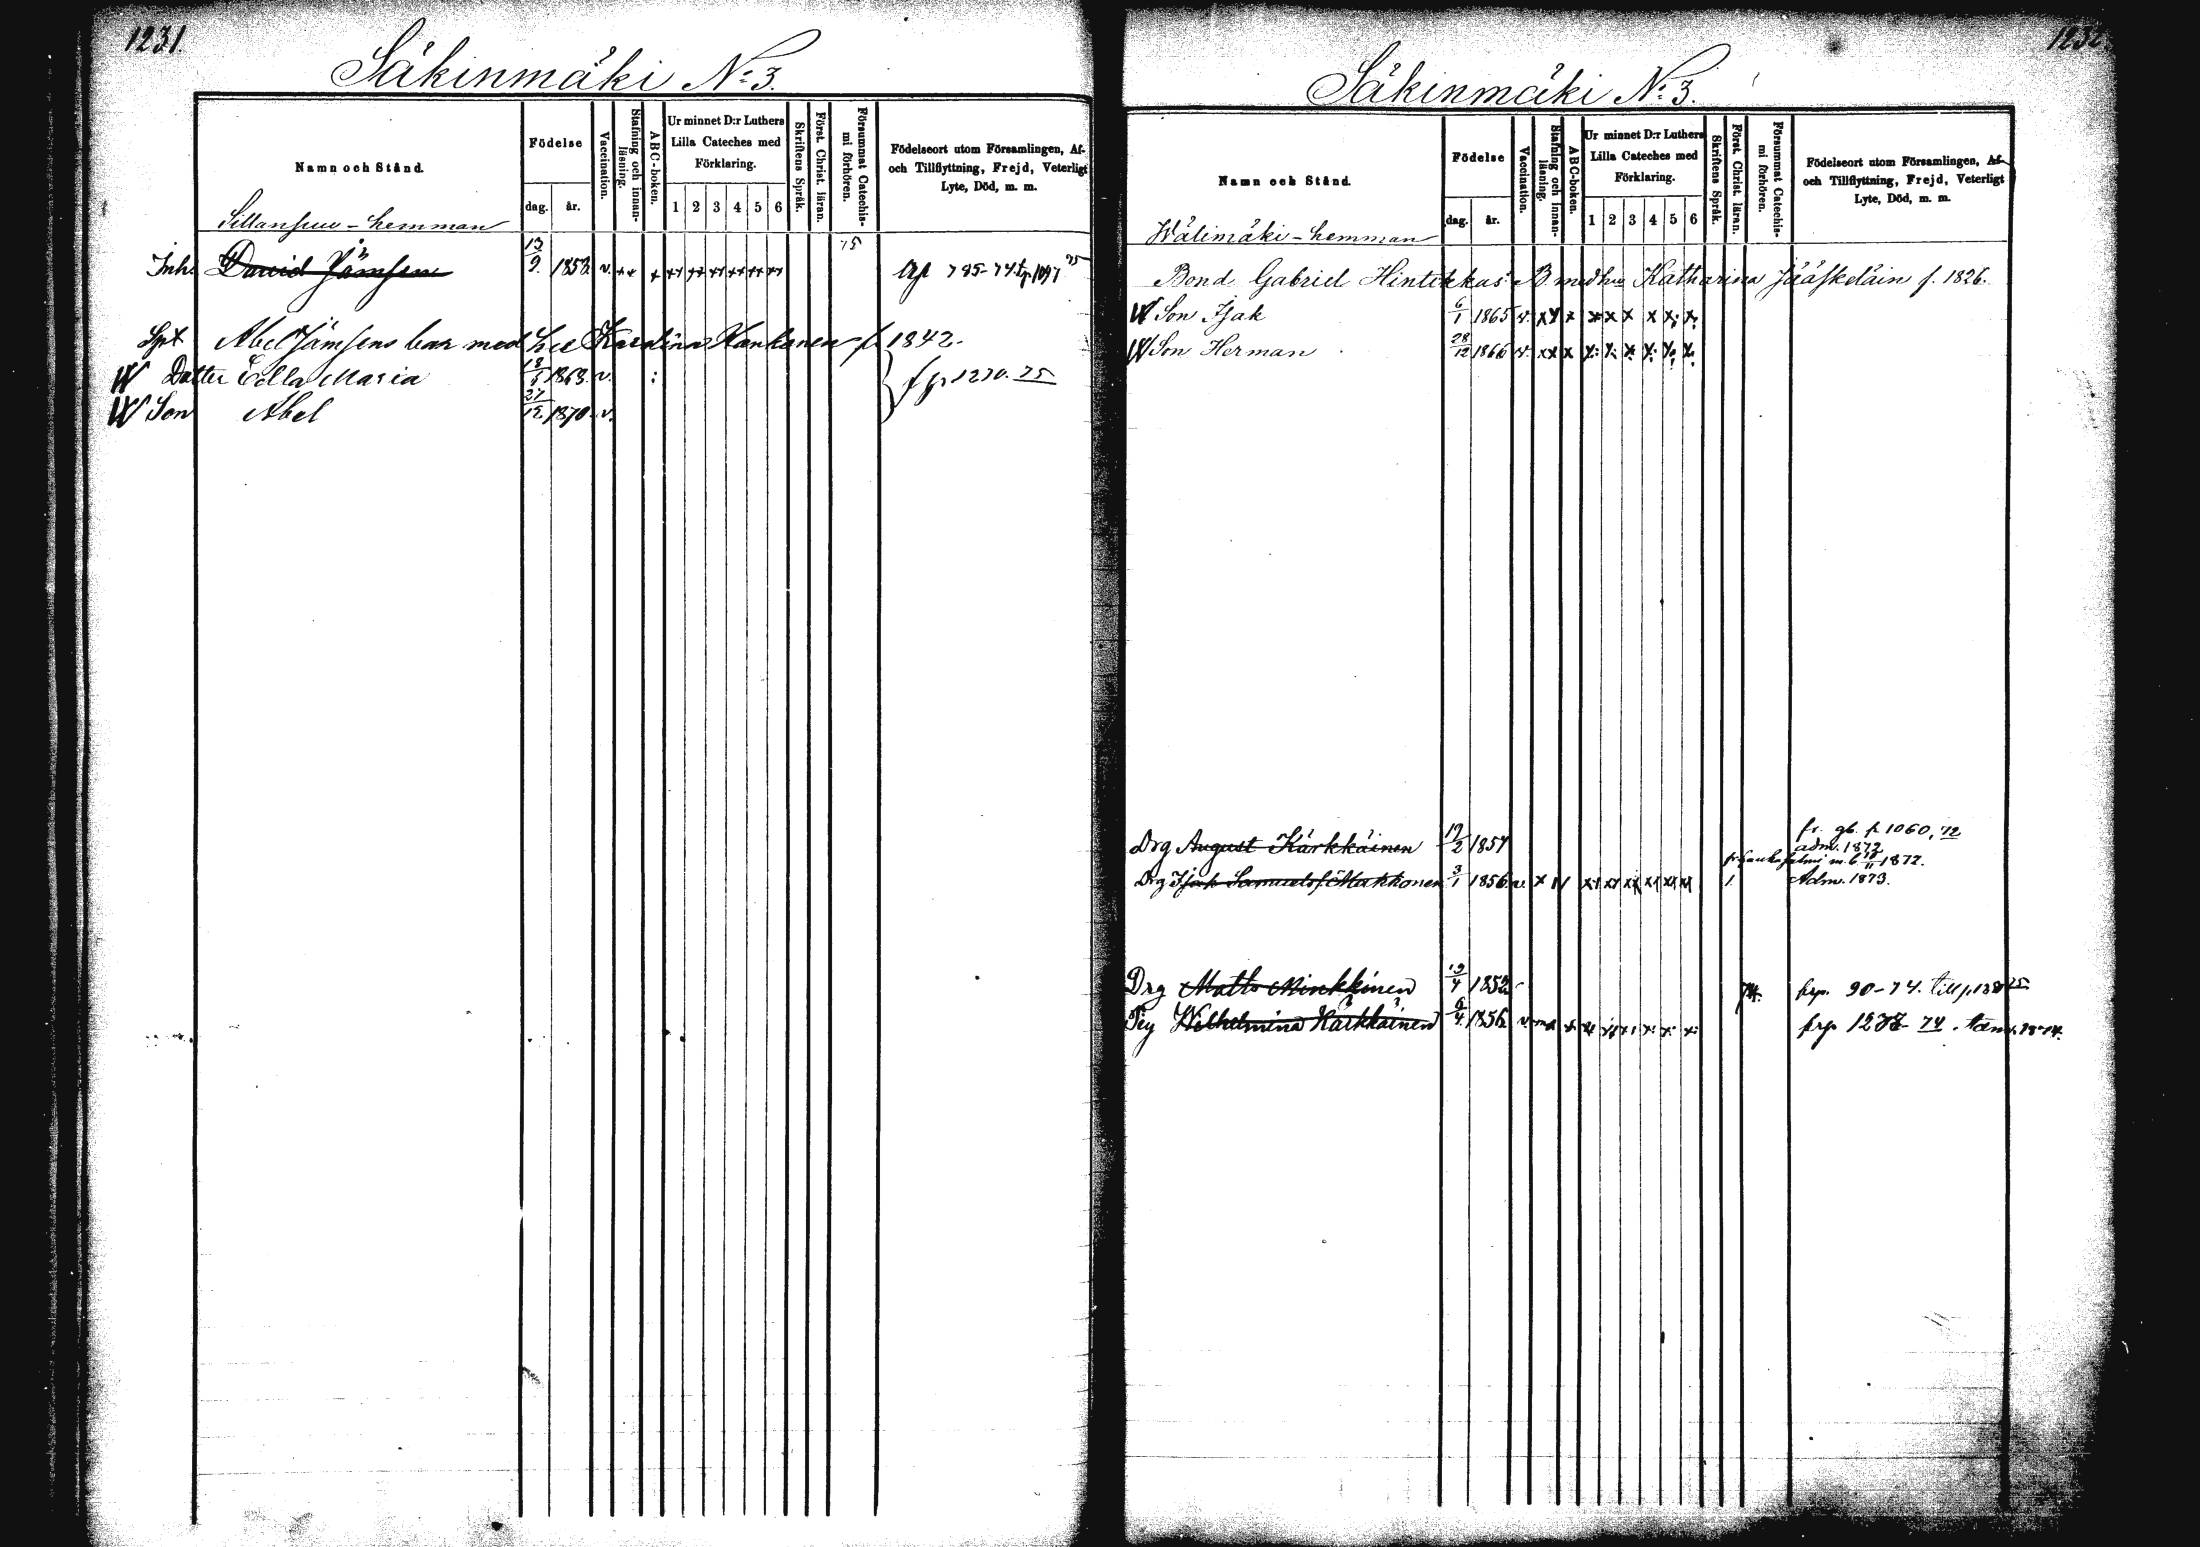 1231.
Säkinmäki No 3.
Namn och Stånd.
Födelse
dag. år.
Vaccination.
Stafning och innan-läsning.
ABC-boken.
Ur minnet D:r Luthers
Lilla Cateches med
Förklaring.
1 2 3 4 5 6
Skriftens Språk.
Först. Christ. läran.
Försummat Catechis-mi förhören.
Födelseort utom Församlingen, Af-
och Tillflyttning, Frejd, Veterligt
Lyte, Död, m. m.
hemman
Inh. David Jämsen 13/9 1858 v. 75 785-74
Abel Jämsens barn med h. Karolina f. 1842.
Dotter Ella Maria 1868. v. 1230. 75
Son Abel 27/12 1870. v.
1232.
Säkinmäki No 3.
Namn och Stånd.
Födelse
dag. år.
Vaccination.
Stafning och innan-läsning.
ABC-boken.
Ur minnet D:r Luthers
Lilla Cateches med
Förklaring.
1 2 3 4 5 6
Skriftens Språk.
Först. Christ. läran.
Försummat Catechis-mi förhören.
Födelseort utom Församlingen, Af-
och Tillflyttning, Frejd, Veterligt
Lyte, Död, m. m.
Wälimäki-hemman
Bond. Gabriel Hintikkas B med hu Katharina Jääskeläin f. 1826.
Son Isak 6/1 1865 v.
Son Herman 28/12 1866 v.
Drg August Kärkkäinen 19/2 1854 fr. gb. p 1060, 72
adm. 1872
fr. Hankasalmi m. b. 1872.
Drg Isak Samuelsf. Makkonen 3/1 1856 v. 1. Adm. 1873.
Drg Matts Minkkinen 19/4 1852 74. frp. 90-74.
Pig Wilhelmina Kärkkäinen 6/4 1856 v. frp 74